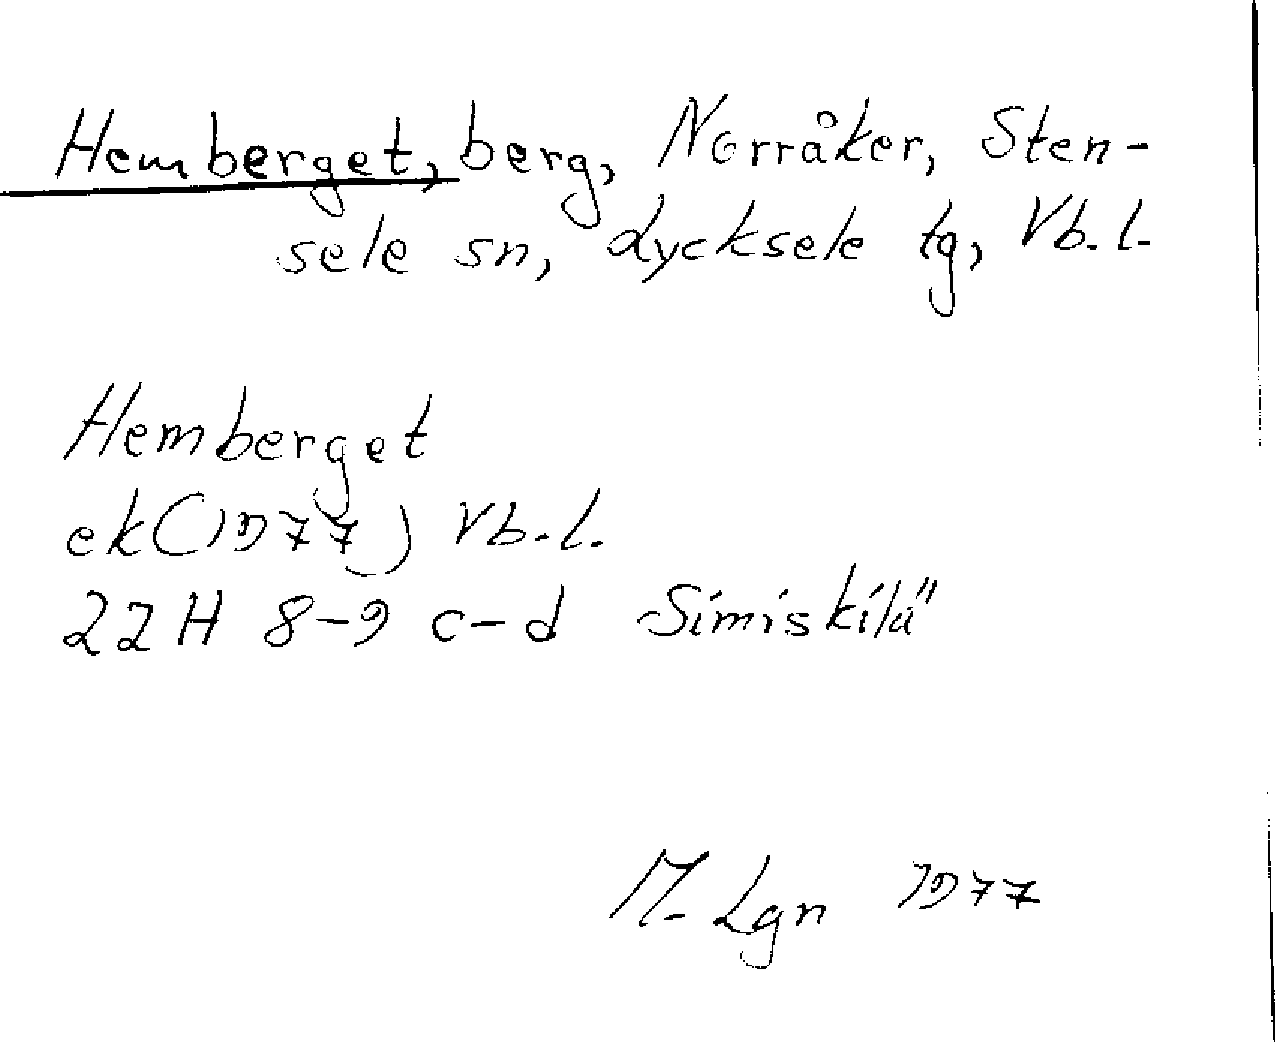 Hemberget, berg, Norråker, Sten-
sele sn, Lycksele tg, Vb. l.
Hemberget
ek (1977) Vb. l.
22 H 8-9 c-d Simiskilä
M. Lgn 1977